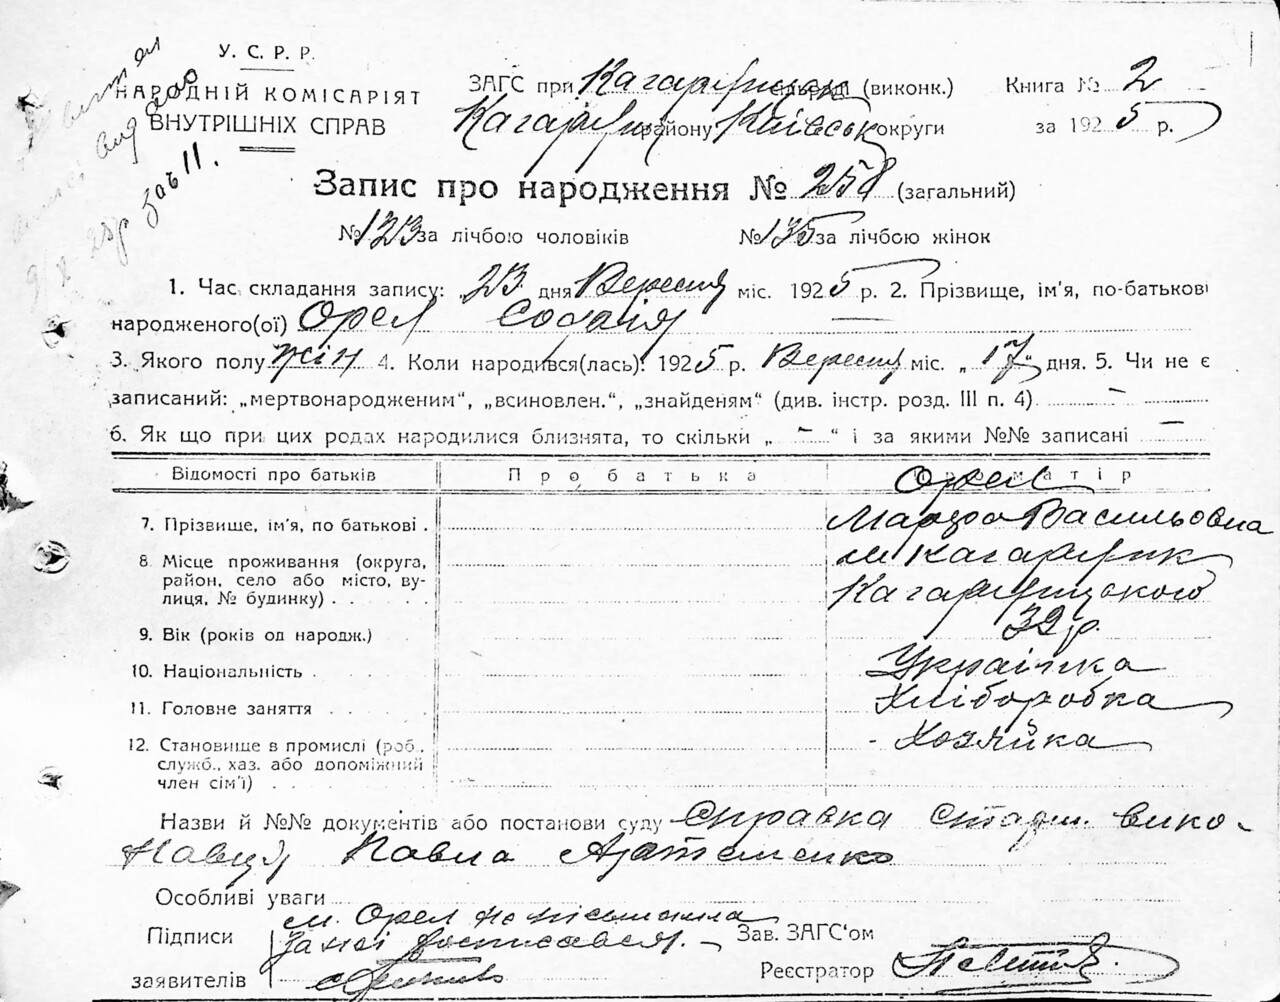 У. С. Р. Р.
НАРОДНІЙ КОМІСАРІЯТ
ВНУТРІШНІХ СПРАВ
ЗАГС при Кагарлицьк сельраді (виконк.)
Кагарлицьк району Київськ округи
Книга № 2
за 1925 р.
Запис про народження № 258 (загальний)
№ 123 за лічбою чоловіків № 135 за лічбою жінок
1. Час складання запису: 23 дня Вересня міс. 1925 р. 2. Прізвище, ім'я, по-батькові
народженого(ої) Орел Софія
3. Якого полу жін 4. Коли народився(лась): 1925 р. Вересня міс. „17“ дня. 5. Чи не є
записаний: „мертвонародженим“, „всиновлен.“, „знайденям“ (див. інстр. розд. III п. 4) –
6. Як що при цих родах народилися близнята, то скільки „ – “ і за якими №№ записані –
Відомості про батьків Про батька Про матір
7. Прізвище, ім'я, по батькові . Орел
Марфа Васильовна
8. Місце проживання (округа, м Кагарлик
район, село або місто, ву-
лиця, № будинку) . Кагарлицького
9. Вік (років од народж.) 32 р.
10. Національність . Українка
11. Головне заняття . Хліборобка
12. Становище в промислі (роб., Хозяйка
служб., хаз. або допоміжний
член сім'ї) .
Назви й №№ документів або постанови суду Справка старш. вико-
навця Павла Артеменко
Особливі уваги
Підписи м. Орел не письменна
за неї росписався. –
заявителів
Зав. ЗАГС'ом
Реєстратор